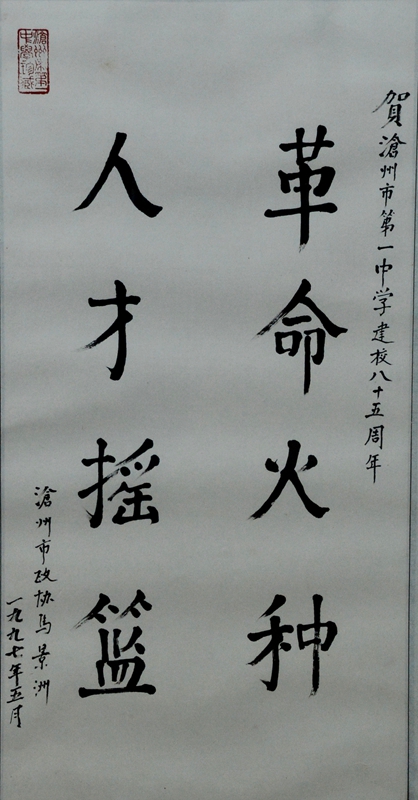 賀滄州市第一中学建校八十五周年
革命火种
人才摇篮
滄州市政协马景洲
一九九七年五月